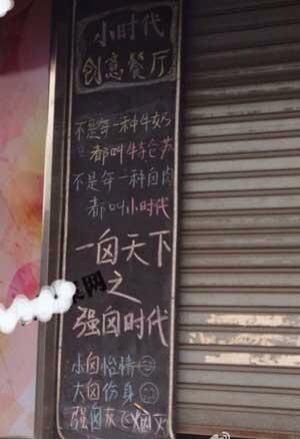 小时代
创意餐厅
不是每一种牛奶
都叫特仑苏
不是每一种囟肉
都叫小时代
一囟天下
之
强囟时代
小囟怡情
大囟伤身
强囟灰飞烟灭